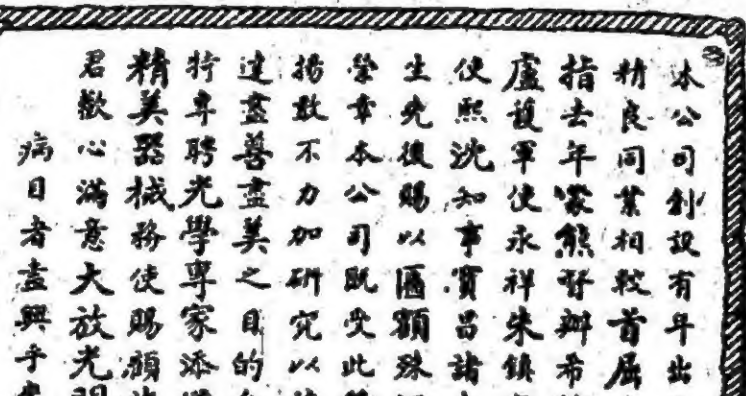 本公司創設有年出
精良同業相較首屈
指去年蒙熊督辦希
盧護軍使永祥朱鎮
使熙沈知事寶昌諸
生先後賜以匾額殊
榮幸本公司既受此
揚敢不力加研究以
達盡善盡美之目的
特專聘光學專家添
精美器械務使賜顧
君歡心滿意大放光明
病目者盍興乎